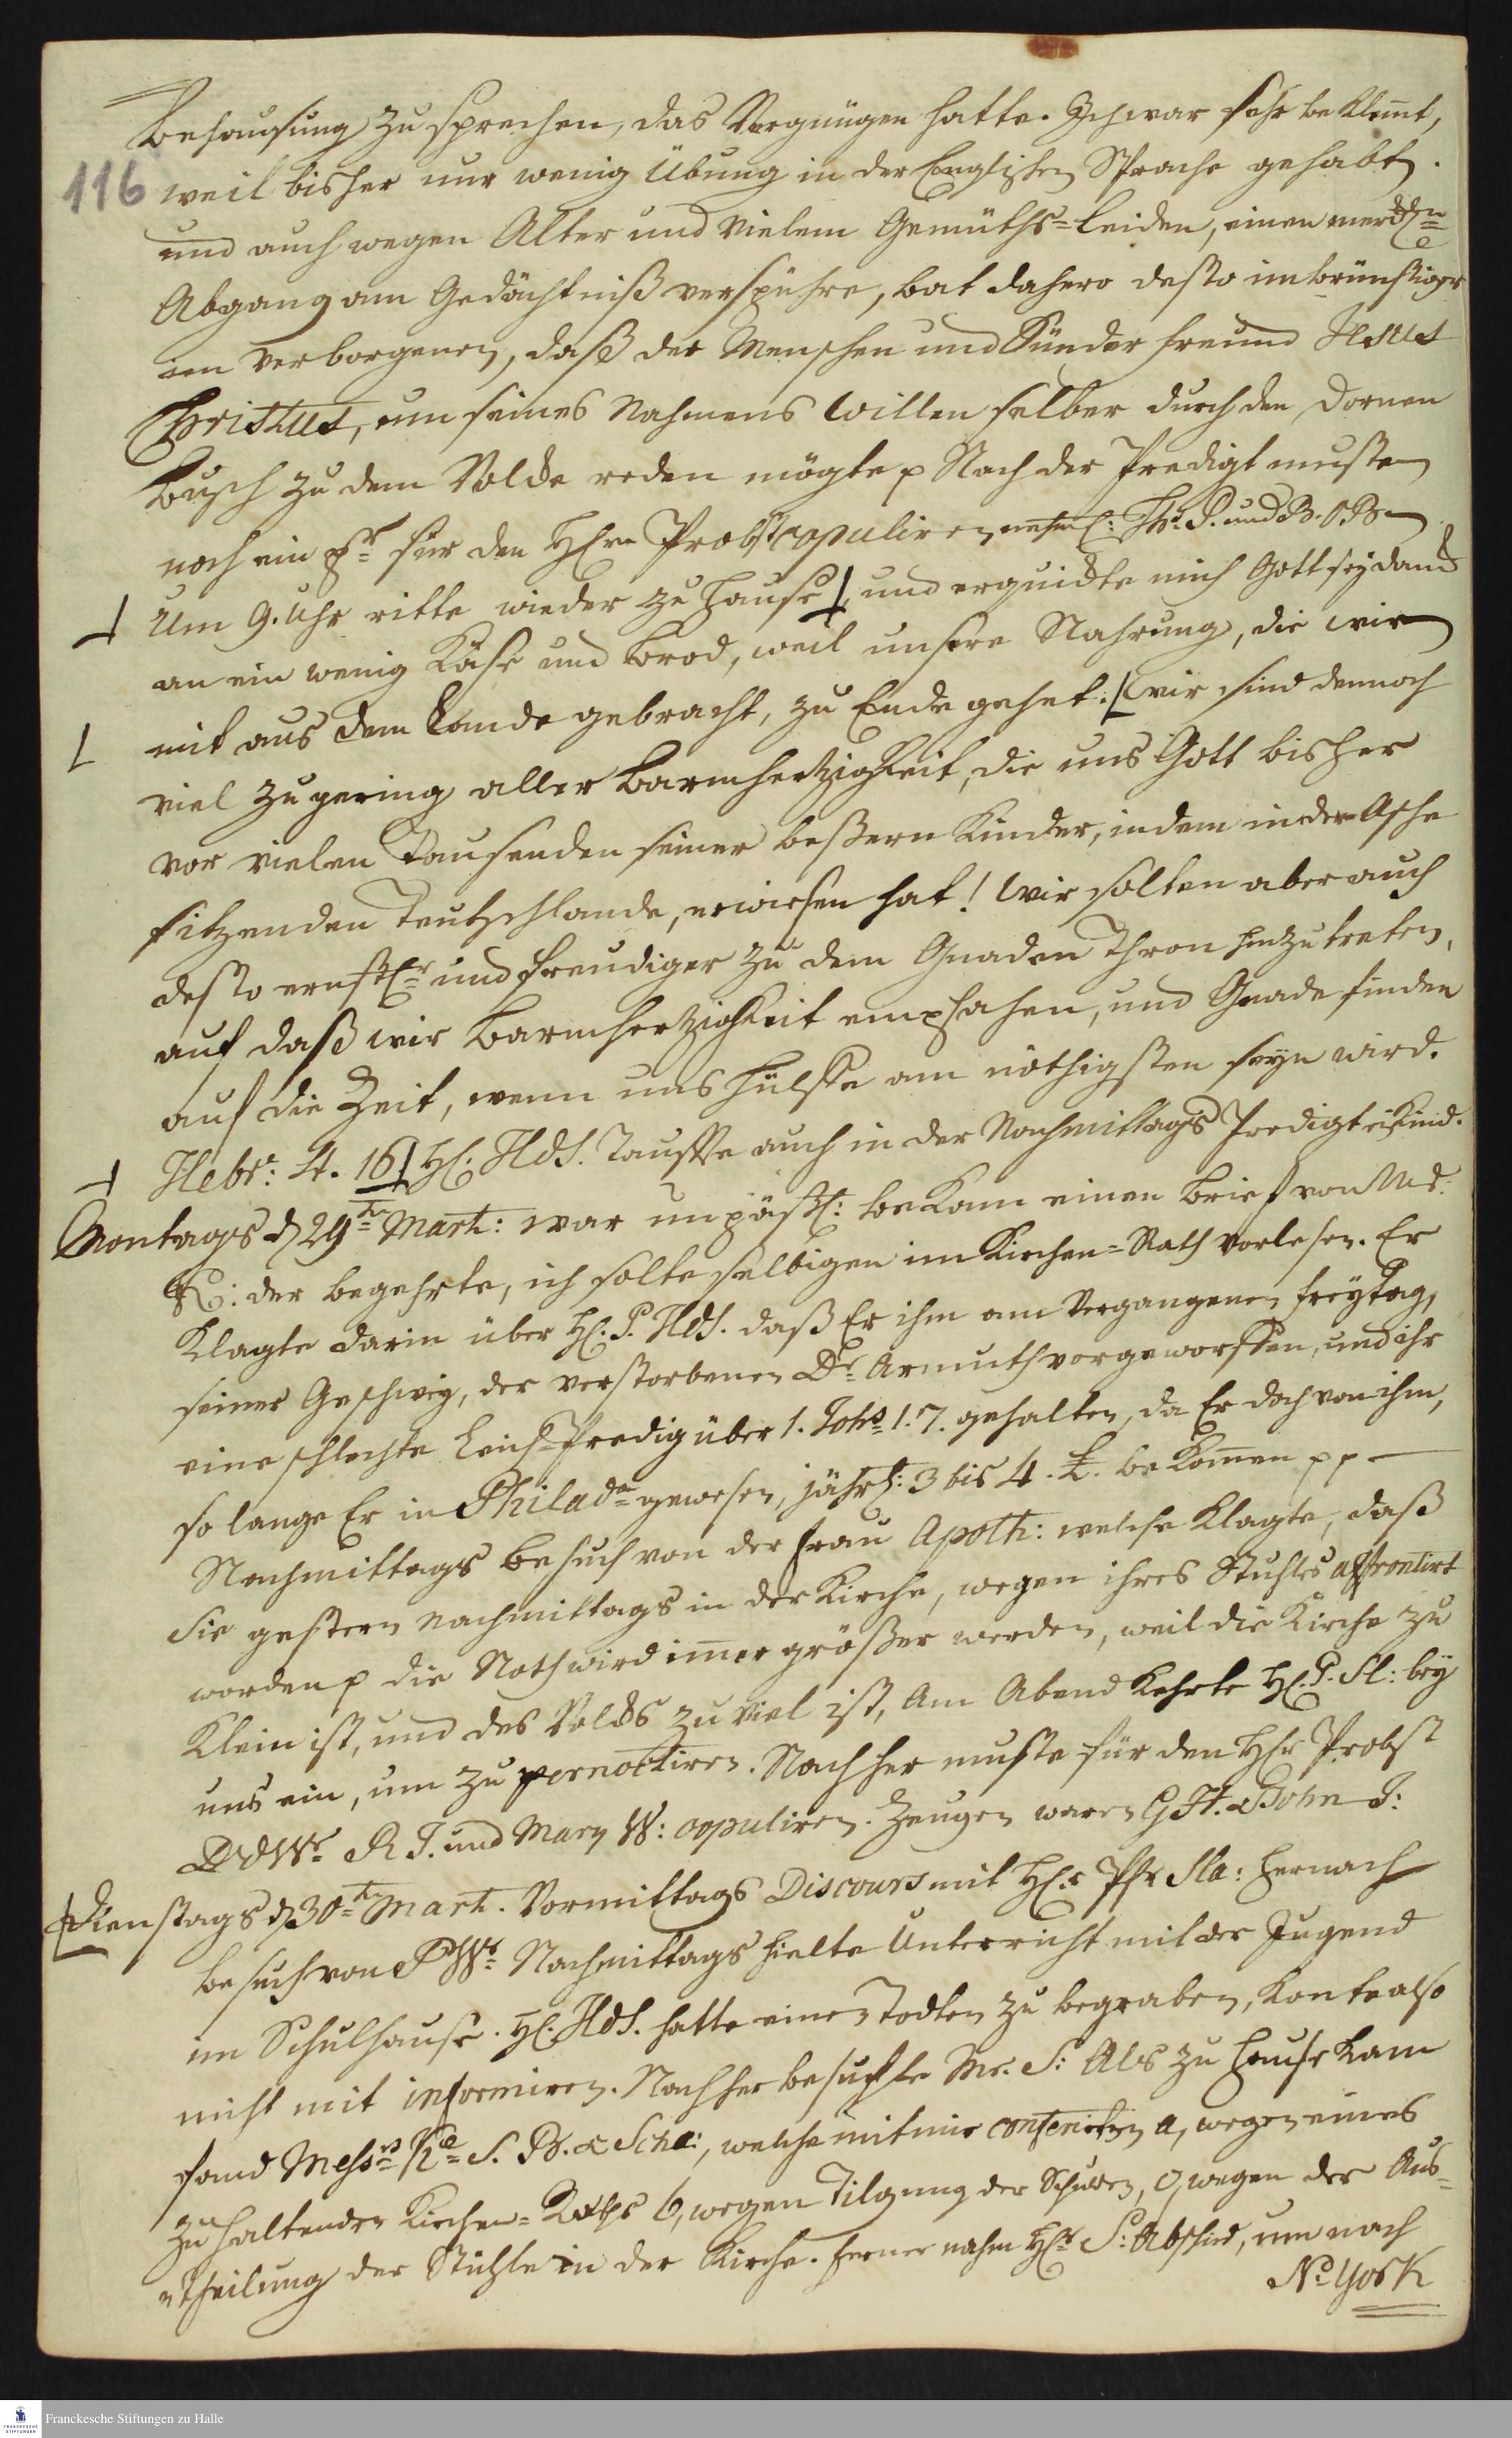 Behausung zu sprechen, das Vergnügen hatte. Ich war sehr beklemt,
116 weil bisher nur wenig Übung in der Englischen Sprache gehabt.
und auch wegen Alter und vielem Gemüths-Leiden, einen
Abgang am Gedächtniß verspühre, bat dahero desto inbrünstiger
im Verborgenen, daß der Menschen und Sünder Freund Jesus
Christus, um seines Nahmens Willen selber durch den Dornen
Busch zu dem Volcke reden mögte p Nach der Predigt muste
noch ein pr für den Hhrn Probst copuliren nehml: Ths. P. und B. OB
Um 9. Uhr ritte wieder zu Hause, und erquickte mich Gott sey danck
an ein wenig Käse und Brod, weil unsere Nahrung, die wir
mit aus dem Lande gebracht, zu Ende gehet: wir sind dennoch
viel zu gering aller Barmhertzigkeit, die uns Gott bisher
vor vielen Tausenden seiner beßern Kinder, in dem in der Asche
sitzenden Teutschlande, erwiesen hat! Wir solten aber auch
desto ernstlr und freudiger zu dem Gnaden Thron hinzutreten,
auf daß wir Barmhertzigkeit empfahen, und Gnade finden
auf die Zeit, wenn uns Hülffe am nöthigsten seyn wird.
Hebr: 4. 16 Hl. HdS. Tauffte auch in der Nachmittags Predigt ein Kind.
Montags d 29tn Mart: war unpäßl: bekam einen Brief von Md:
R: der begehrte, ich solte selbigen im Kirchen-Rath vorlesen. Er
klagte darin über Hl. P. HdS. daß Er ihm am vergangenen Freytag,
seiner Geschwey, der verstorbenen Dr Armuth vorgeworffen, und ihr
eine schlechte Leich-Predig über 1. Johs 1.7. gehalten, da Er doch von ihm,
so lange Er in Philada gewesen, jährl: 3 bis 4. £. bekommen p p
Nachmittags Besuch von der Frau Apoth: welche klagte, daß
Sie gestern Nachmittags in der Kirche, wegen ihres Stuhles affrontirt
worden p die Noth wird immer größer werden, weil die Kirche zu
klein ist, und des Volcks zu viel ist, Am Abend kehrte Hl. P. Sl: bey
uns ein, um zu pernoctiren. Nachher muste für den Hhr Probst
DrWr R J. und Mary W: copuliren. Zeugen waren G H. & John J:
Dienstags d 30tn Mart. Vormittags Discours mit Hl. Pfr Sla: hernach
besuch von PWr Nachmittags hielte Unterricht mit der Jugend
im Schulhause. Hl. HdS. hatte einen Todten zu begraben, konte also
nicht mit informiren. Nachher besuchte Mr. S: Als zu Hause kam
fand Messrs S. B. & Scha:, welche mit mir conferirten a, wegen eines
zu haltenden Kirchen-Raths b, wegen Tilgung der Schulden, c, wegen der Aus-
Theilung der Stühle in der Kirche. ferner nahm Hl. S: Abschied, um nach
N. York
Franckesche Stiftungen zu Halle